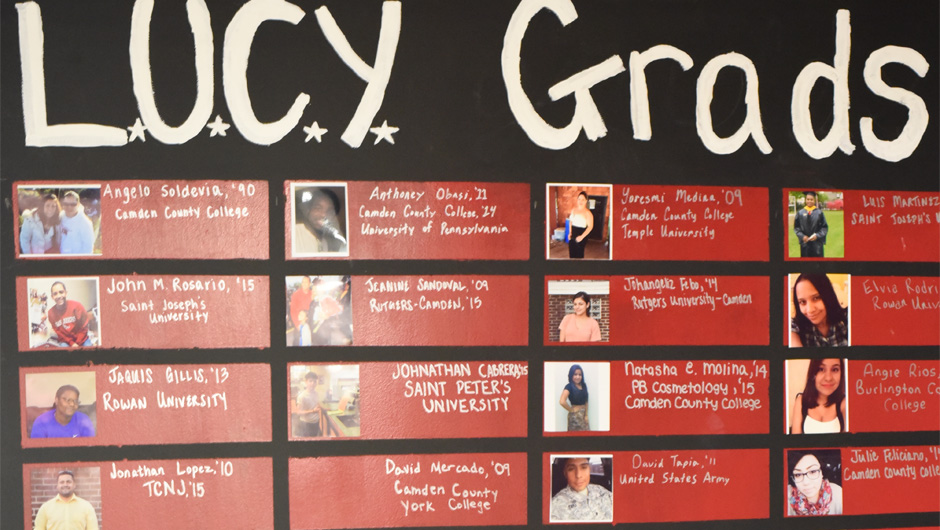 L.U.C.Y. Grads
Angelo Soldevia, '90
Camden County College
Anthoney Obasi, '11
Camden County College, '14
University of Pennsylvania
Yoresmi Medina, '09
Camden County College
Temple University
LUIS MARTINEZ
SAINT JOSEPH'S
John M. Rosario, '15
Saint Joseph's
University
JEANINE SANDOVAL, '09
RUTGERS-CAMDEN, '15
Johangeliz Febo, '14
Rutgers University-Camden
Elvia
Rowan
JAQUIS GILLIS, '13
ROWAN UNIVERSITY
JOHNATHAN CABRERA, '15
SAINT PETER'S
UNIVERSITY
Natasha E. Molina, '14
PB Cosmetology, '15
Camden County College
Angie Rios,
Burlington Co
College
Jonathan Lopez, '10
TCNJ, '15
David Mercado, '09
Camden County
York College
David Tapia, '11
United States Army
Julie Feliciano,
Camden County